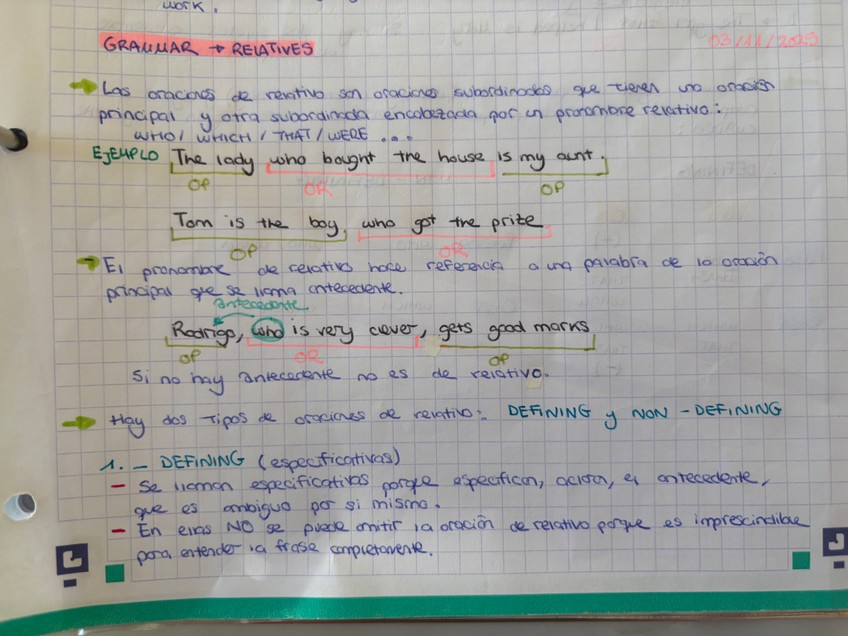 work.
GRAMMAR → RELATIVES
03/11/2025
Las oraciones de relativo son oraciones subordinadas que tienen una oración
principal y otra subordinada encabezada por un pronombre relativo:
WHO / WHICH / THAT / WERE ...
EJEMPLO The lady who bought the house is my aunt.
OP OR OP
Tom is the boy, who got the prize
OP OR
El pronombre de relativo hace referencia a una palabra de la oración
principal que se llama antecedente.
antecedente
Rodrigo, who is very clever, gets good marks
OP OR OP
Si no hay antecedente no es de relativo.
Hay dos tipos de oraciones de relativo: DEFINING y NON-DEFINING
1. - DEFINING (especificativas)
- Se llaman especificativas porque especifican, aclaran, el antecedente,
que es ambiguo por si mismo.
- En ellas NO se puede omitir la oración de relativo porque es imprescindible
para entender la frase completamente.